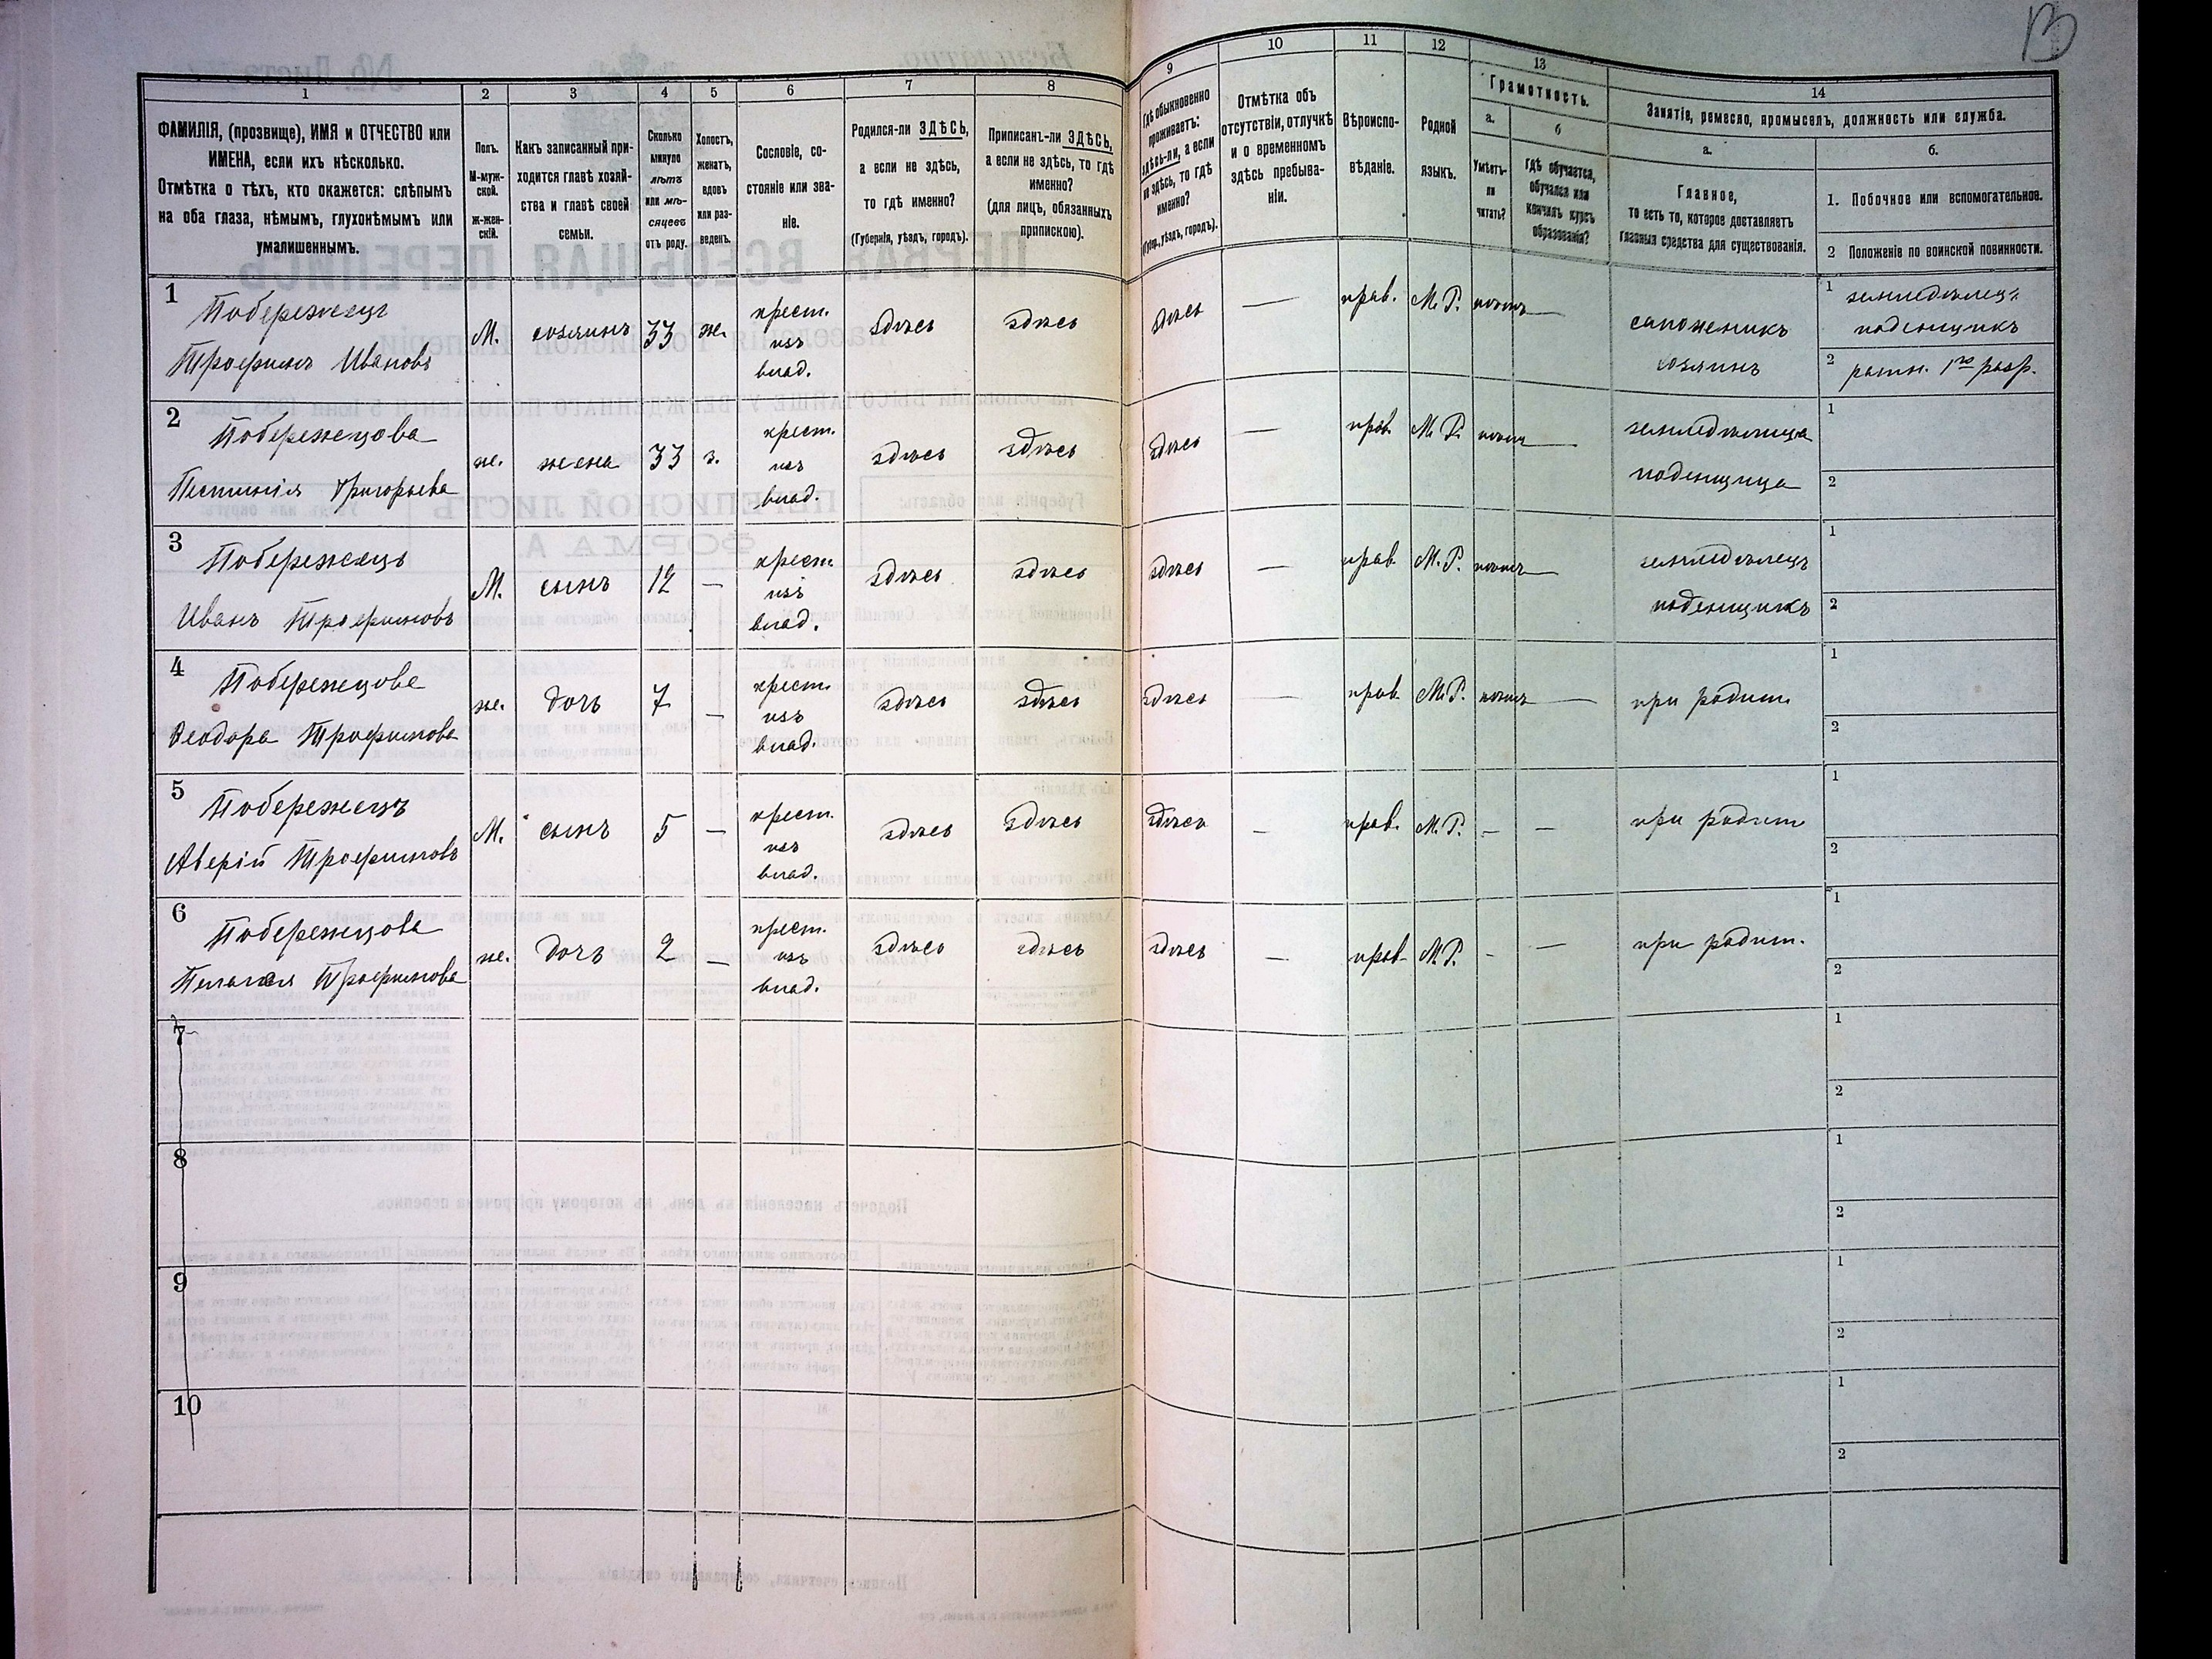 13
1
2
3
4
5
6
7
8
9
10
11
12
13
14
ФАМИЛІЯ, (прозвище), ИМЯ и ОТЧЕСТВО или
ИМЕНА, если ихъ нѣсколько.
Отмѣтка о тѣхъ, кто окажется: слѣпымъ
на оба глаза, нѣмымъ, глухонѣмымъ или
умалишеннымъ.
Полъ.
М-муж-
ской.
ж-жен-
скій.
Какъ записанный при-
ходится главѣ хозяй-
ства и главѣ своей
семьи.
Сколько
минуло
лѣтъ
или мѣ-
сяцевъ
отъ роду.
Холостъ,
женатъ,
вдовъ
или раз-
веденъ.
Сословіе, со-
стояніе или зва-
ніе.
Родился-ли ЗДѢСЬ,
а если не здѣсь,
то гдѣ именно?
(Губернія, уѣздъ, городъ).
Приписанъ-ли ЗДѢСЬ,
а если не здѣсь, то гдѣ
именно?
(для лицъ, обязанныхъ
припискою).
Гдѣ обыкновенно
проживаетъ:
здѣсь-ли, а если
не здѣсь, то гдѣ
именно?
(Губер., уѣздъ, городъ).
Отмѣтка объ
отсутствіи, отлучкѣ
и о временномъ
здѣсь пребыва-
ніи.
Вѣроиспо-
вѣданіе.
Родной
языкъ.
Грамотность.
а.
б
Умѣетъ-
ли
читать?
Гдѣ обучается,
обучался или
кончилъ курсъ
образованія?
Занятіе, ремесло, промыселъ, должность или служба.
а.
б.
Главное,
то есть то, которое доставляетъ
главныя средства для существованія.
1. Побочное или вспомогательное.
2 Положеніе по воинской повинности.
1
Побережець
Трофимъ Ивановъ
М. хозяинъ 33 ж.
крест.
изъ
влад.
здѣсь здѣсь здѣсь — прав. М.Р. —
сапожникъ
хозяинъ
1 земледѣлец.
поденщикъ
2 ратн. 1го разр.
2
Побережцова
Григорьева
же. жена 33 з.
крест.
изъ
влад.
здѣсь здѣсь здѣсь — прав. М.Р. —
земледѣлица
поденщица
1
2
3
Побережецъ
Иванъ Трофимовъ
М. сынъ 12 —
крест.
изъ
влад.
здѣсь здѣсь здѣсь — прав. М.Р. —
земледѣлецъ
поденщикъ
1
2
4
Побережцова
Ѳеодора Трофимова
же. дочь 7 —
крест.
изъ
влад.
здѣсь здѣсь здѣсь — прав. М.Р. —
при родит.
1
2
5
Побережецъ
Аверій Трофимовъ
М. сынъ 5 —
крест.
изъ
влад.
здѣсь здѣсь здѣсь — прав. М.Р. — —
при родит
1
2
6
Побережцова
Пелагея Трофимова
же. дочь 2 —
крест.
изъ
влад.
здѣсь здѣсь здѣсь — прав. М.Р. - —
при родит.
1
2
7
1
2
8
1
2
9
1
2
10
1
2